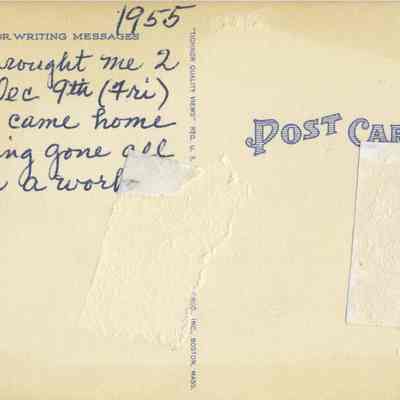 1955
OR WRITING MESSAGES
rought me 2
Dec 9th (Fri)
came home
ing gone all
a work
"TICHNOR QUALITY VIEWS" REG. U. S.
INC., BOSTON, MASS.
POST CAR